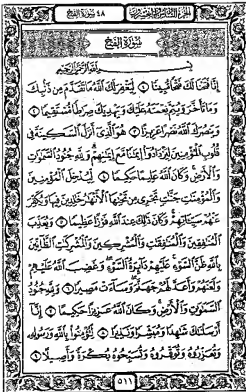 الجزء السادس والعشرون ٤٨ سورة الفتح
سورة الفتح
بِسْمِ اللَّهِ الرَّحْمَٰنِ الرَّحِيمِ
إِنَّا فَتَحْنَا لَكَ فَتْحًا مُّبِينًا ١ لِّيَغْفِرَ لَكَ اللَّهُ مَا تَقَدَّمَ مِن ذَنبِكَ
وَمَا تَأَخَّرَ وَيُتِمَّ نِعْمَتَهُ عَلَيْكَ وَيَهْدِيَكَ صِرَٰطًا مُّسْتَقِيمًا ٢
وَيَنصُرَكَ اللَّهُ نَصْرًا عَزِيزًا ٣ هُوَ الَّذِي أَنزَلَ السَّكِينَةَ فِي
قُلُوبِ الْمُؤْمِنِينَ لِيَزْدَادُوا إِيمَٰنًا مَّعَ إِيمَٰنِهِمْ ۗ وَلِلَّهِ جُنُودُ السَّمَٰوَٰتِ
وَالْأَرْضِ وَكَانَ اللَّهُ عَلِيمًا حَكِيمًا ٤ لِّيُدْخِلَ الْمُؤْمِنِينَ
وَالْمُؤْمِنَٰتِ جَنَّٰتٍ تَجْرِي مِن تَحْتِهَا الْأَنْهَٰرُ خَٰلِدِينَ فِيهَا وَيُكَفِّرَ
عَنْهُمْ سَيِّئَاتِهِمْ وَكَانَ ذَٰلِكَ عِندَ اللَّهِ فَوْزًا عَظِيمًا ٥ وَيُعَذِّبَ
الْمُنَٰفِقِينَ وَالْمُنَٰفِقَٰتِ وَالْمُشْرِكِينَ وَالْمُشْرِكَٰتِ الظَّانِّينَ
بِاللَّهِ ظَنَّ السَّوْءِ عَلَيْهِمْ دَائِرَةُ السَّوْءِ وَغَضِبَ اللَّهُ عَلَيْهِمْ
وَلَعَنَهُمْ وَأَعَدَّ لَهُمْ جَهَنَّمَ وَسَاءَتْ مَصِيرًا ٦ وَلِلَّهِ جُنُودُ
السَّمَٰوَٰتِ وَالْأَرْضِ وَكَانَ اللَّهُ عَزِيزًا حَكِيمًا ٧ إِنَّا
أَرْسَلْنَٰكَ شَٰهِدًا وَمُبَشِّرًا وَنَذِيرًا ٨ لِّتُؤْمِنُوا بِاللَّهِ وَرَسُولِهِ
وَتُعَزِّرُوهُ وَتُوَقِّرُوهُ وَتُسَبِّحُوهُ بُكْرَةً وَأَصِيلًا ٩
٥١١